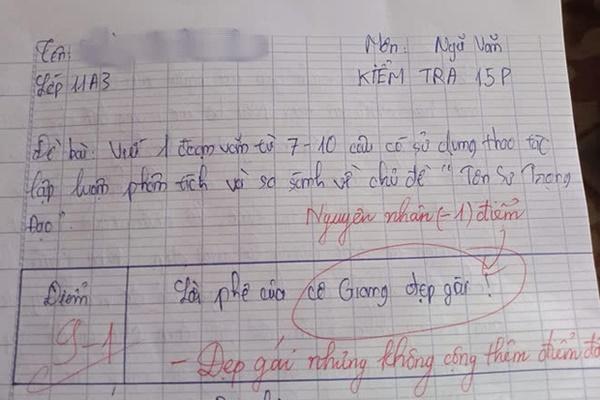 Tên:
Môn: Ngữ Văn
Lớp 11A3
KIỂM TRA 15P
Đề bài: Viết 1 đoạn văn từ 7-10 câu có sử dụng thao tác
lập luận phân tích và so sánh về chủ đề "Tôn Sư Trọng
Đạo".
Nguyên nhân (-1) điểm
Điểm
Lời phê của cô Giang đẹp gái!
9-1
- Đẹp gái nhưng không cộng thêm điểm